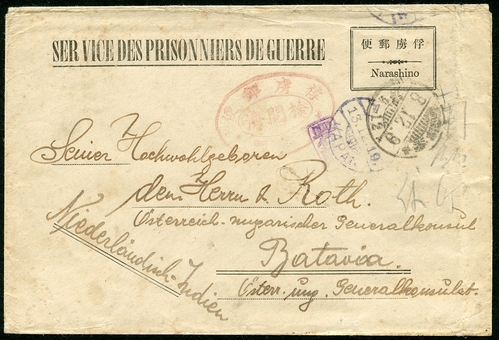 SERVICE DES PRISONNIERS DE GUERRE
便郵虜俘
Narashino
Seiner Hochwohlgeboren
dem Herrn L. Roth.
Österreich-ungarischer Generalkonsul
Batavia.
Österr. ung. Generalkonsulat.
Niederländisch-Indien